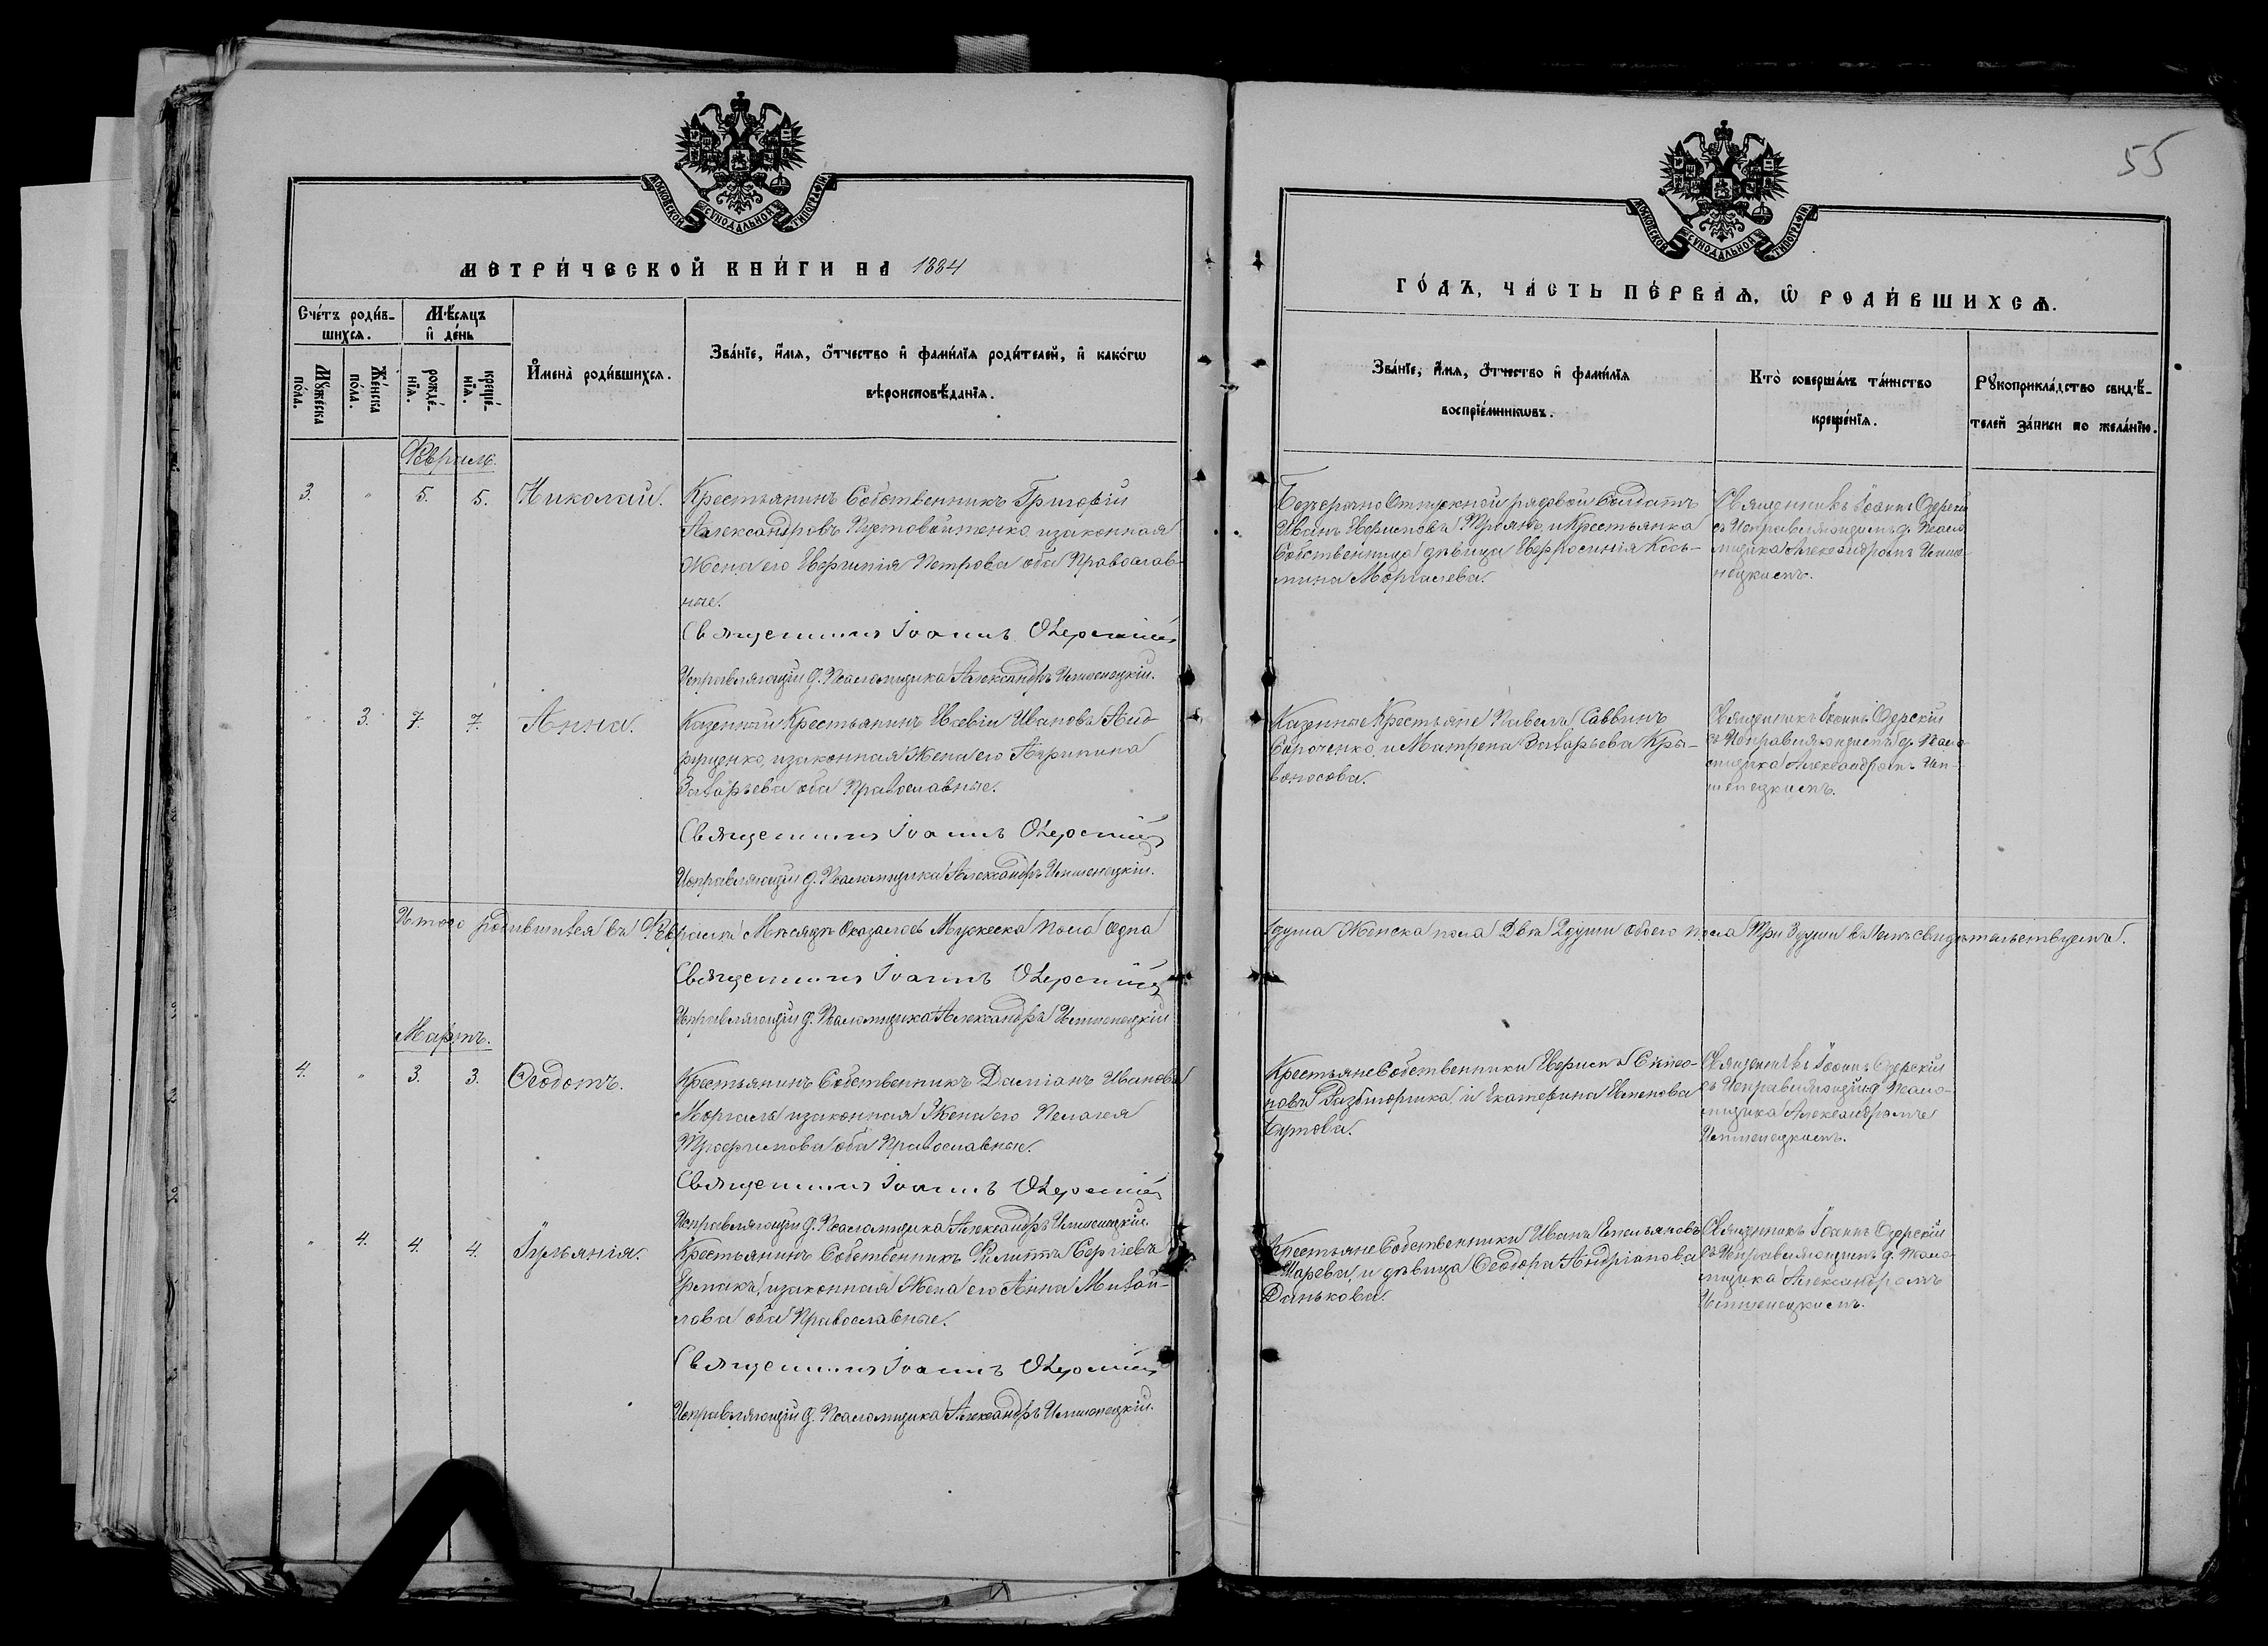 55
МОСКОВСКОЙ СѴНОДАЛЬНОЙ ТИПОГРАФІИ
МЕТРИ́ЧЕСКОЙ КНИ́ГИ НА 1884
Сче́тъ роди́в-
шихсѧ.
Мꙋ́жеска
по́ла.
Же́нска
по́ла.
Мѣ́сѧцъ
и҆ де́нь
рожде́-
нїѧ.
креще́-
нїѧ.
И҆мена̀ роди́вшихсѧ.
Зва́нїе, и҆́мѧ, ѻ҆́тчество и҆ фами́лїѧ роди́телей, и҆ како́гѡ
вѣроисповѣ́данїѧ.
Февраль.
3. " 5. 5. Николай.
Крестьянинъ Собственникъ Григорій
Александровъ Пустовойтенко, изаконная
Жена его Евфимія Петрова оба Православ-
ные.
Священникъ Іоаннъ Озерскій
Исправляющій д. Псаломщика Александръ
" 3. 7. 7. Анна.
Казенный Крестьянинъ Евсевій Ивановъ
изаконная Жена его
Захарьева оба Православные.
Священникъ Іоаннъ Озерскій
Исправляющій д. Псаломщика Александръ
Итого родившихся въ Февралѣ Мѣсяцѣ Оказалось Мужеска пола Одна
Священникъ Іоаннъ Озерскій
Исправляющій д. Псаломщика Александръ
Мартъ.
4. " 3. 3. Ѳеодотъ.
Крестьянинъ Собственникъ Даміанъ Ивановъ
Моргаль изаконная Жена его Пелагея
Трофимова оба Православные.
Священникъ Іоаннъ Озерскій
Исправляющій д. Псаломщика Александръ
" 4. 4. 4. Іульянія.
Крестьянинъ Собственникъ Филиппъ Сергіевъ
Ермакъ, изаконная Жена его Анна Михай-
лова оба Православные.
Священникъ Іоаннъ Озерскій
Исправляющій д. Псаломщика Александръ
МОСКОВСКОЙ СѴНОДАЛЬНОЙ ТИПОГРАФІИ
ГО́ДЪ, ЧА́СТЬ ПЕ́РВАѦ, Ѡ҆ РОДИ́ВШИХСѦ.
Зва́нїе, и҆́мѧ, ѻ҆́тчество и҆ фами́лїѧ
воспрїе́мникѡвъ.
Кто̀ соверша́лъ та́инство
креще́нїѧ.
Рꙋкоприкла́дство свидѣ́-
телей за́писи по жела́нїю.
Безсрочно Отпускной рядовой Солдатъ
Иванъ и Крестьянка
Собственница дѣвица Евфросинія Кось-
мина Моргалева.
Священникъ Іоаннъ Озерскій
съ Исправляющимъ д. Псало
мщика Александромъ
Казенные Крестьяне Павелъ Саввинъ
Сороченко, и Матрена Захарьева Кры-
воносова.
Священникъ Іоаннъ Озерскій
съ Исправляющимъ д. Псало-
мщика Александромъ
1душа Женска пола Двѣ 2души обоего пола Три 3души въ чемъ свидѣтельствуемъ.
Крестьяне Собственники
и Екатерина
Бутова.
Священникъ Іоаннъ Озерскій
съ Исправляющій д. Псало-
мщика Александромъ
Крестьяне Собственники Иванъ Емельяновъ
и дѣвица Ѳеодора Андріанова
Данькова.
Священникъ Іоаннъ Озерскій
съ Исправляющимъ д. Псало-
мщика Александромъ